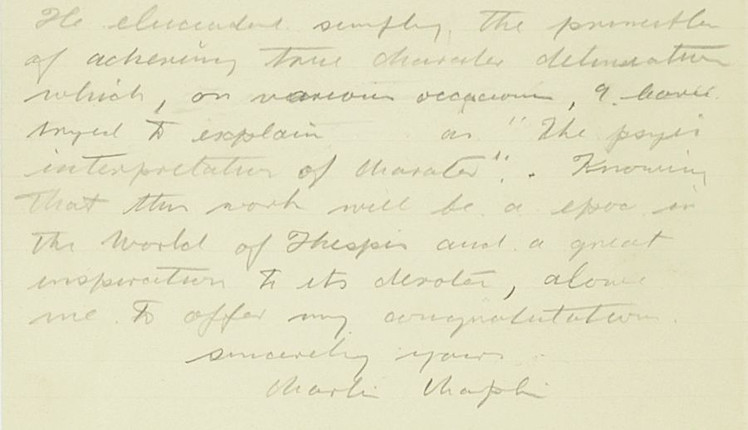 He elucidates simply, the
of achieving true character delineation
which, on various occasions, I have
tryed to explain as "the psyic
interpretation of character". Knowing
that this work will be a epoc in
the World of Thespis and a great
inspiration to its devotee, alow
me to offer my congratulations.
sincerely yours
Charlie Chaplin